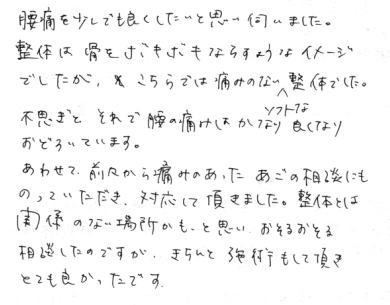 腰痛を少しでも良くしたいと思い伺いました。
整体は骨をボキボキならすようなイメージ
でしたが、こちらでは痛みのないソフトな整体でした。
不思ぎと それで腰の痛みはかなり良くなり
おどろいています。
あわせて、前々から痛みのあった あごの相談にも
のっていただき、対応して頂きました。整体とは
関係のない場所かも、と思い、おそるおそる
相談したのですが、きちんと施術もして頂き
とても良かったです。